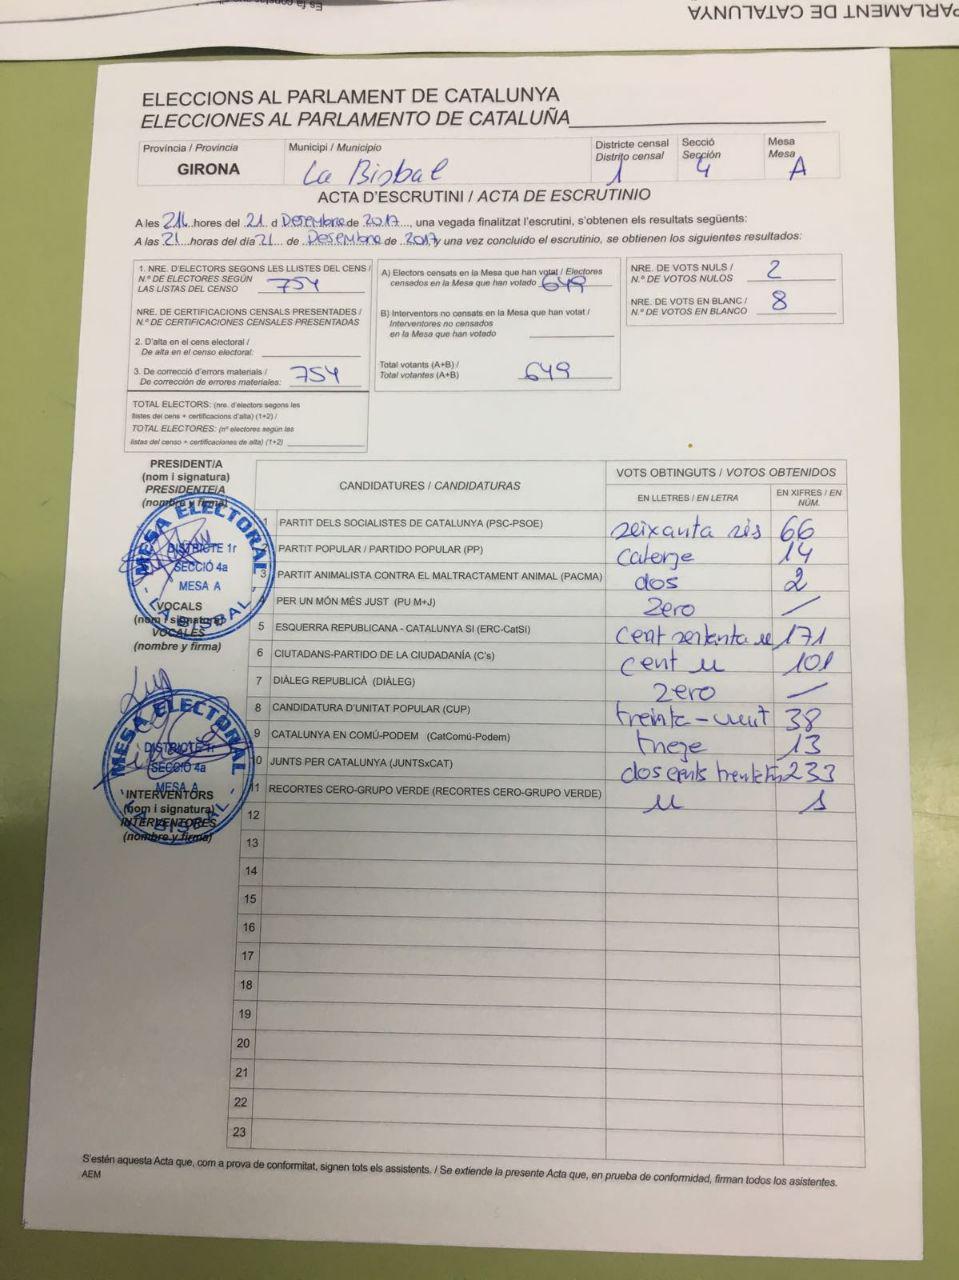 PARLAMENT DE CATALUNYA
ELECCIONS AL PARLAMENT DE CATALUNYA
ELECCIONES AL PARLAMENTO DE CATALUÑA
Província / Provincia
GIRONA
Municipi / Municipio
La Bisbal
Districte censal
Distrito censal
1
Secció
Sección
4
Mesa
Mesa
A
ACTA D'ESCRUTINI / ACTA DE ESCRUTINIO
A les 21h hores del 21 d Desembre de 2017, una vegada finalitzat l'escrutini, s'obtenen els resultats següents:
A las 21 horas del día 21 de Desembre de 2017 y una vez concluido el escrutinio, se obtienen los siguientes resultados:
1. NRE. D'ELECTORS SEGONS LES LLISTES DEL CENS /
N.º DE ELECTORES SEGÚN
LAS LISTAS DEL CENSO 754
NRE. DE CERTIFICACIONS CENSALS PRESENTADES /
N.º DE CERTIFICACIONES CENSALES PRESENTADAS
2. D'alta en el cens electoral /
De alta en el censo electoral:
3. De correcció d'errors materials /
De corrección de errores materiales: 754
TOTAL ELECTORS: (nre. d'electors segons les
llistes del cens + certificacions d'alta) (1+2) /
TOTAL ELECTORES: (nº electores según las
listas del censo + certificaciones de alta) (1+2)
A) Electors censats en la Mesa que han votat / Electores
censados en la Mesa que han votado 649
B) Interventors no censats en la Mesa que han votat /
Interventores no censados
en la Mesa que han votado
Total votants (A+B) /
Total votantes (A+B) 649
NRE. DE VOTS NULS /
N.º DE VOTOS NULOS 2
NRE. DE VOTS EN BLANC /
N.º DE VOTOS EN BLANCO 8
PRESIDENT/A
(nom i signatura)
PRESIDENTE/A
(nombre y firma)
MESA ELECTORAL
DISTRICTE 1r
SECCIÓ 4a
MESA A
- LA BISBAL -
VOCALS
(nom i signatura)
VOCALES
(nombre y firma)
MESA ELECTORAL
DISTRICTE 1r
SECCIÓ 4a
MESA A
- LA BISBAL -
INTERVENTORS
(nom i signatura)
INTERVENTORES
(nombre y firma)
CANDIDATURES / CANDIDATURAS
VOTS OBTINGUTS / VOTOS OBTENIDOS
EN LLETRES / EN LETRA
EN XIFRES / EN NÚM.
1 PARTIT DELS SOCIALISTES DE CATALUNYA (PSC-PSOE) seixanta sis 66
2 PARTIT POPULAR / PARTIDO POPULAR (PP) catorze 14
3 PARTIT ANIMALISTA CONTRA EL MALTRACTAMENT ANIMAL (PACMA) dos 2
4 PER UN MÓN MÉS JUST (PU M+J) zero —
5 ESQUERRA REPUBLICANA - CATALUNYA SÍ (ERC-CatSí) cent setanta u 171
6 CIUTADANS-PARTIDO DE LA CIUDADANÍA (C's) cent u 101
7 DIÀLEG REPUBLICÀ (DIÀLEG) zero —
8 CANDIDATURA D'UNITAT POPULAR (CUP) treinta-vuit 38
9 CATALUNYA EN COMÚ-PODEM (CatComú-Podem) tretze 13
10 JUNTS PER CATALUNYA (JUNTSxCAT) dos cents trenta 233
11 RECORTES CERO-GRUPO VERDE (RECORTES CERO-GRUPO VERDE) u 1
12
13
14
15
16
17
18
19
20
21
22
23
S'estén aquesta Acta que, com a prova de conformitat, signen tots els assistents. / Se extiende la presente Acta que, en prueba de conformidad, firman todos los asistentes.
AEM